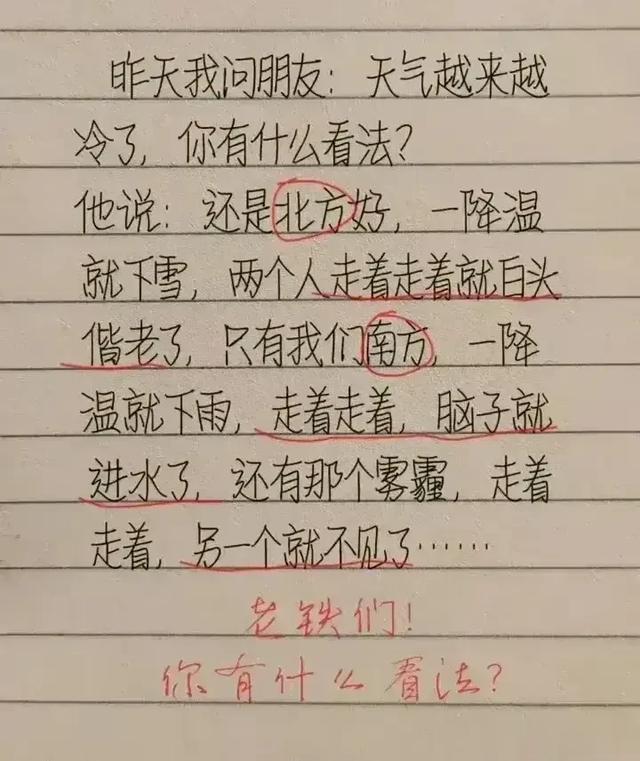 昨天我问朋友：天气越来越
冷了，你有什么看法？
他说：还是北方好，一降温
就下雪，两个人走着走着就白头
偕老了，只有我们南方，一降
温就下雨，走着走着，脑子就
进水了，还有那个雾霾，走着
走着，另一个就不见了……
老铁们！
你有什么看法？